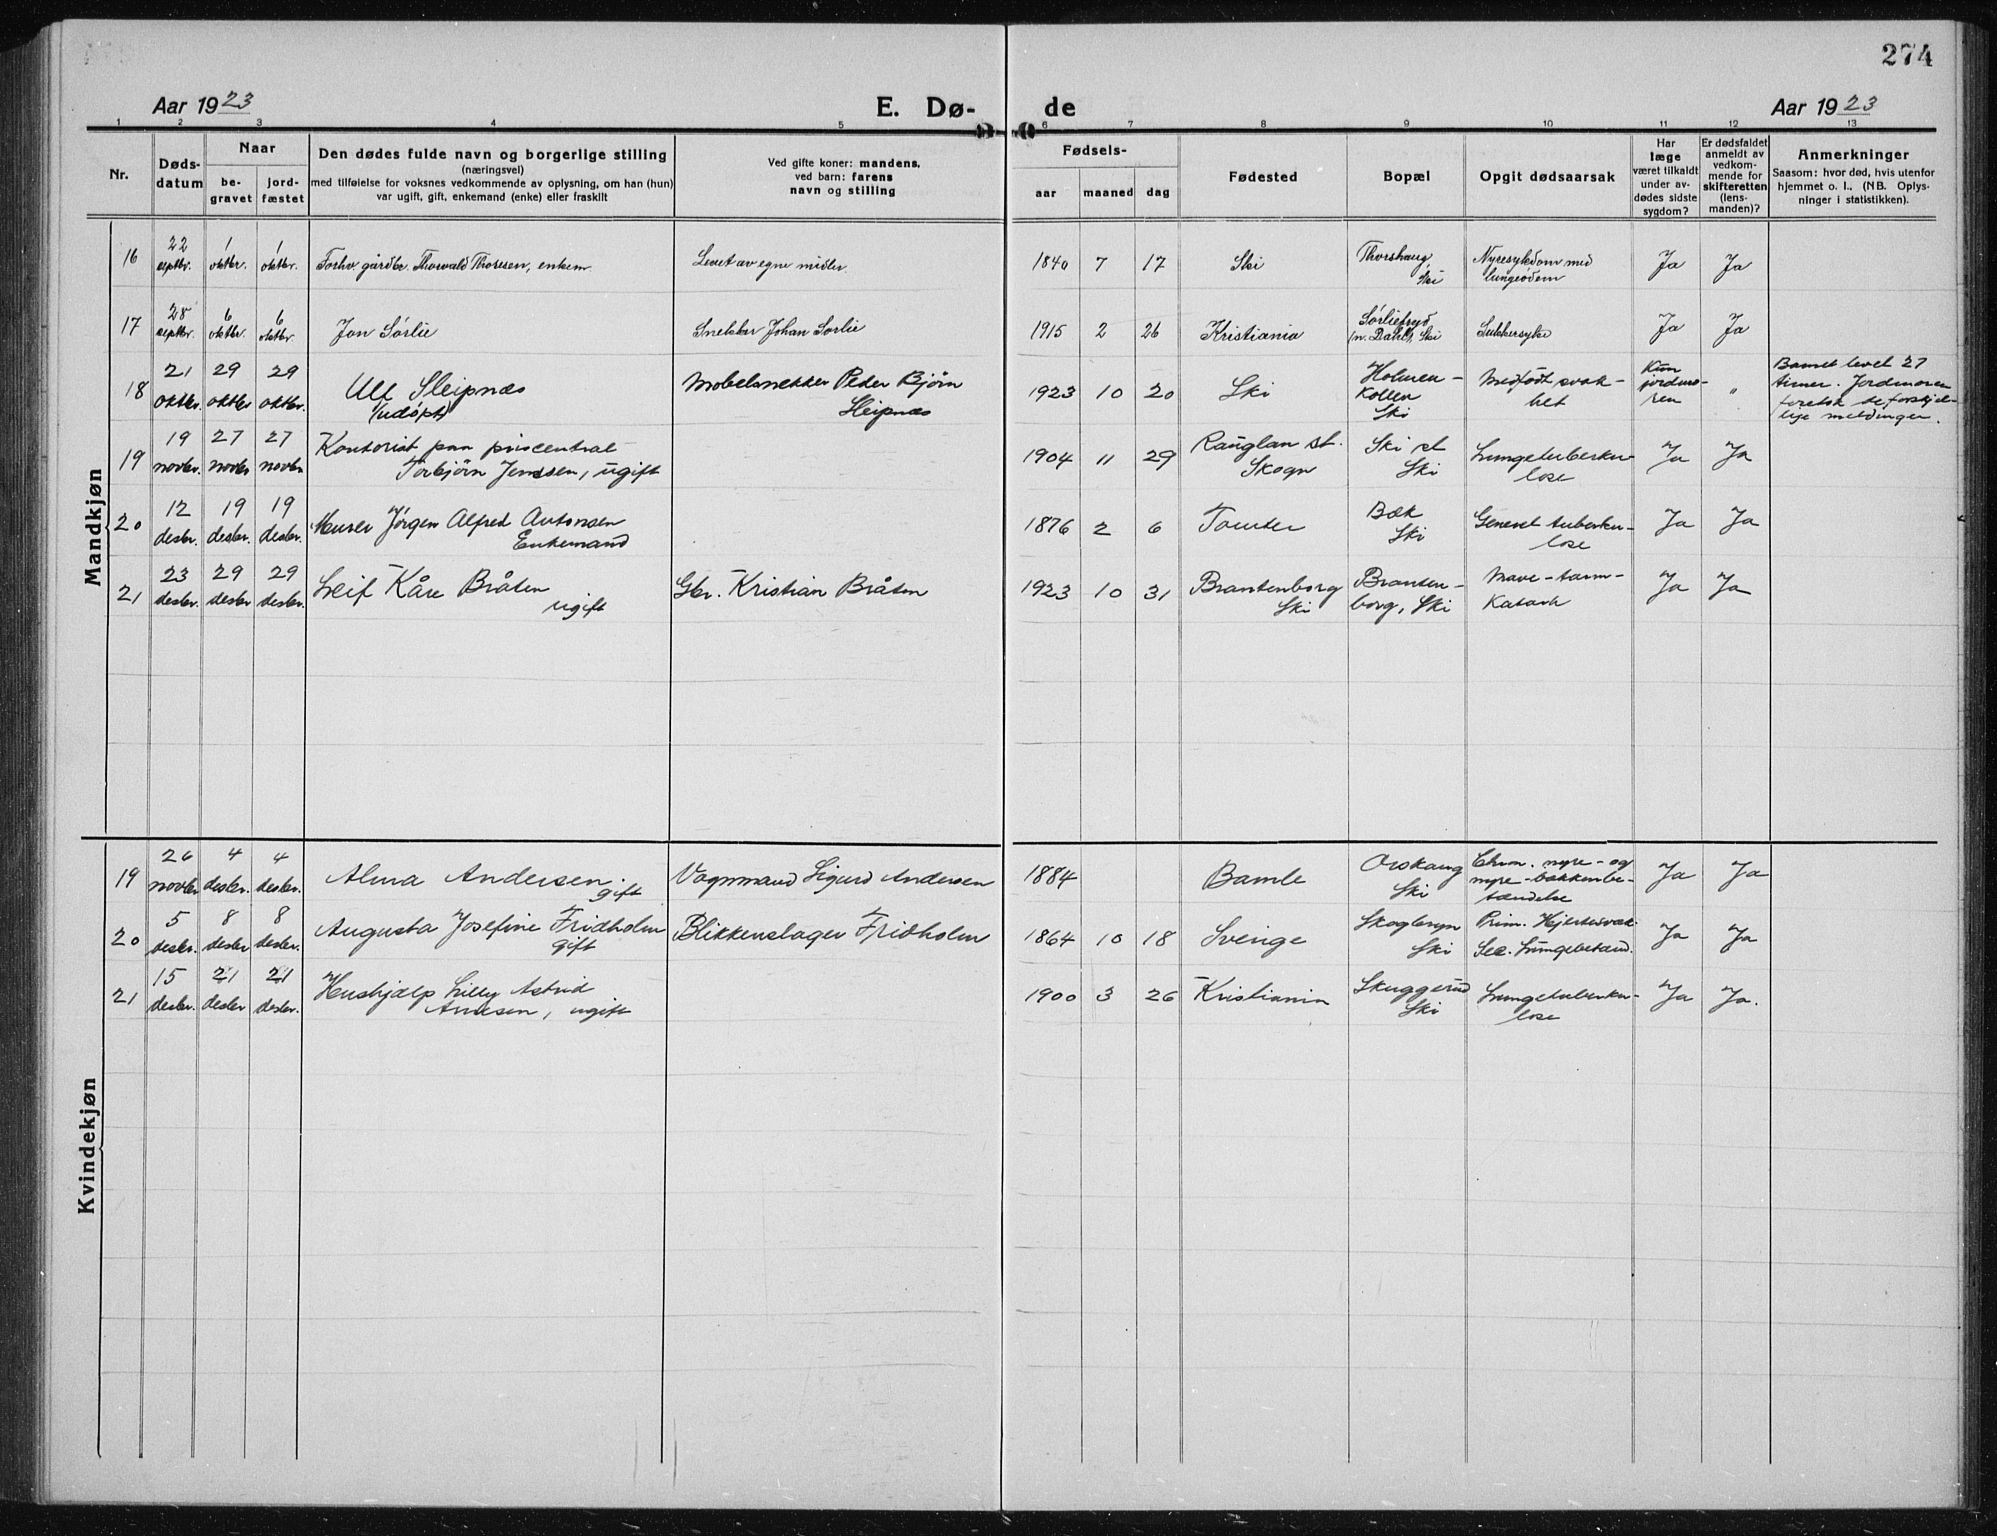 274
Aar 1923
E. Dø-
de
Aar 1923
1 2 3 4 5 6 7 8 9 10 11 12 13
Nr.
Døds-
datum
Naar
be-
gravet
jord-
fæstet
Den dødes fulde navn og borgerlige stilling
(næringsvei)
med tilføielse for voksnes vedkommende av oplysning, om han (hun)
var ugift, gift, enkemand (enke) eller fraskilt
Ved gifte koner: mandens,
ved barn: farens
navn og stilling
Fødsels-
aar maaned dag
Fødested
Bopæl
Opgit dødsaarsak
Har
læge
været tilkaldt
under av-
dødes sidste
sygdom?
Er dødsfaldet
anmeldt av
vedkom-
mende for
skifteretten
(lens-
manden)?
Anmerkninger
Saasom: hvor død, hvis utenfor
hjemmet o. l., (NB. Oplys-
ninger i statistikken).
Mandkjøn
16
22
septbr.
1
oktbr.
1
oktbr.
Forhv. gårdbr. Thorvald Thoresen, enkem.
Levet av egne midler.
1840 7 17
Ski
Thorshaug,
Ski
Nyresykdom med
lungeödem
Ja
Ja
17
28
septbr.
6
oktbr.
6
oktbr.
Jon Sørlie
Snekker Johan Sørlie
1915 2 26
Kristiania
Sørliefryd
(n. Dahl), Ski
Sukkersyke
Ja
Ja
18
21
oktbr.
29
oktbr.
29
oktbr.
Ulf Sleipnæs
(udöpt)
Møbelsnekker Peder Bjørn
Sleipnæs
1923 10 20
Ski
Holmen-
kollen
Ski
Medfødt svak-
het
Kun
jordmo-
ren
"
Barnet levet 27
timer. Jordmoren
foretok de forskjel-
lige meldinger.
19
19
novbr.
27
novbr.
27
novbr.
Kontorist paa priscentral
Torbjørn Jenssen, ugift
1904 11 29
Rauglan st.
Skogn
Ski st
Ski
Lungetuberku-
lose
Ja
Ja
20
12
desbr.
19
desbr.
19
desbr.
Murer Jørgen Alfred Antonsen
Enkemand
1876 2 6
Tomter
Bæk
Ski
Generel tuberku-
lose
Ja
Ja
21
23
desbr.
29
desbr.
29
desbr.
Leif Kåre Bråten
ugift
Gbr. Kristian Bråten
1923 10 31
Brantenborg
Ski
Branten-
borg, Ski
Mave-tarm-
katarh
Ja
Ja
Kvindekjøn
19
26
novbr
4
desbr.
4
desbr.
Alma Andersen
gift
Vognmand Sigurd Andersen
1884
Bamle
Orskaug
Ski
Chron. nyre- og
nyre-bækkenbe-
tændelse
Ja
Ja
20
5
desbr.
8
desbr
8
desbr.
Augusta Josefine Fridholm
gift
Blikkenslager Fridholm
1864 10 18
Sverige
Skogbryn
Ski
Prim. Hjertesvak.
Sec. Lungebetænd.
Ja
Ja
21
15
desbr.
21
desbr
21
desbr.
Hushjælp Lilly Astrid
Andersen, ugift
1900 3 26
Kristiania
Skuggerud
Ski
Lungetuberku-
lose
Ja
Ja.